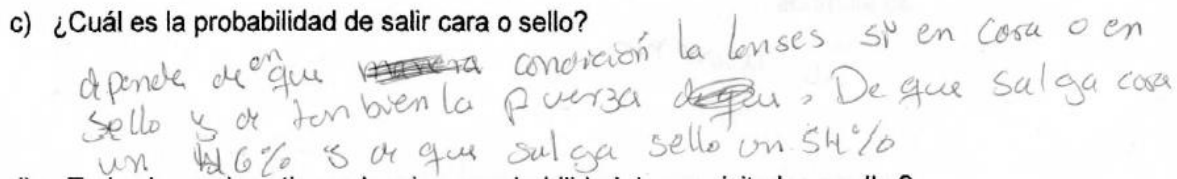 c) ¿Cuál es la probabilidad de salir cara o sello?
depende de en que condición la lanses si en Cara o en
sello y de tanbien la fuerza, De que salga cara
un 46% y de que salga sello un 54%